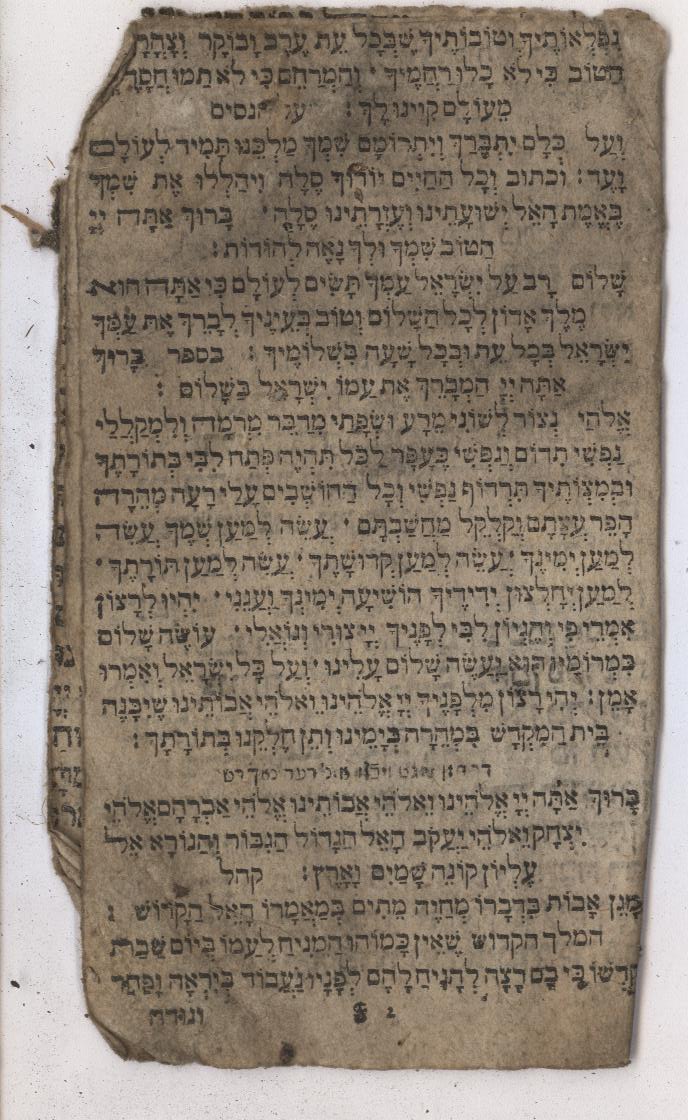 נִפְלְאוֹתֶיךָ וְטוֹבוֹתֶיךָ שֶׁבְּכָל עֵת עֶרֶב וָבוֹקֶר וְצָהֳרָיִם
הַטּוֹב כִּי לֹא כָלוּ רַחֲמֶיךָ וְהַמְרַחֵם כִּי לֹא תַמּוּ חֲסָדֶיךָ
מֵעוֹלָם קִוִּינוּ לָךְ : על הנסים
וְעַל כֻּלָּם יִתְבָּרַךְ וְיִתְרוֹמַם שִׁמְךָ מַלְכֵּנוּ תָּמִיד לְעוֹלָם
וָעֶד : וכתוב וְכָל הַחַיִּים יוֹדוּךָ סֶּלָה וִיהַלְלוּ אֶת שִׁמְךָ
בֶּאֱמֶת הָאֵל יְשׁוּעָתֵינוּ וְעֶזְרָתֵינוּ סֶלָה בָּרוּךְ אַתָּה יְיָ
הַטּוֹב שִׁמְךָ וּלְךָ נָאֶה לְהוֹדוֹת :
שָׁלוֹם רָב עַל יִשְׂרָאֵל עַמְּךָ תָּשִׂים לְעוֹלָם כִּי אַתָּה הוּא
מֶלֶךְ אָדוֹן לְכָל הַשָּׁלוֹם וְטוֹב בְּעֵינֶיךָ לְבָרֵךְ אֶת עַמְּךָ
יִשְׂרָאֵל בְּכָל עֵת וּבְכָל שָׁעָה בִּשְׁלוֹמֶיךָ : בספר בָּרוּךְ
אַתָּה יְיָ הַמְבָרֵךְ אֶת עַמּוֹ יִשְׂרָאֵל בַּשָּׁלוֹם :
אֱלֹהַי נְצוֹר לְשׁוֹנִי מֵרָע וּשְׂפָתַי מִדַּבֵּר מִרְמָה וְלִמְקַלְלַי
נַפְשִׁי תִדּוֹם וְנַפְשִׁי כֶּעָפָר לַכֹּל תִּהְיֶה פְּתַח לִבִּי בְּתוֹרָתֶךָ
וּבְמִצְוֹתֶיךָ תִּרְדּוֹף נַפְשִׁי וְכָל הַחוֹשְׁבִים עָלַי רָעָה מְהֵרָה
הָפֵר עֲצָתָם וְקַלְקֵל מַחֲשַׁבְתָּם עֲשֵׂה לְמַעַן שְׁמֶךָ עֲשֵׂה
לְמַעַן יְמִינֶךָ עֲשֵׂה לְמַעַן קְדוּשָׁתֶךָ עֲשֵׂה לְמַעַן תּוֹרָתֶךָ
לְמַעַן יֵחָלְצוּן יְדִידֶיךָ הוֹשִׁיעָה יְמִינְךָ וַעֲנֵנִי יִהְיוּ לְרָצוֹן
אִמְרֵי פִי וְהֶגְיוֹן לִבִּי לְפָנֶיךָ יְיָ צוּרִי וְגוֹאֲלִי : עוֹשֶׂה שָׁלוֹם
בִּמְרוֹמָיו הוּא יַעֲשֶׂה שָׁלוֹם עָלֵינוּ וְעַל כָּל יִשְׂרָאֵל וְאִמְרוּ
אָמֵן : יְהִי רָצוֹן מִלְּפָנֶיךָ יְיָ אֱלֹהֵינוּ וֵאלֹהֵי אֲבוֹתֵינוּ שֶׁיִּבָּנֶה
בֵּית הַמִּקְדָּשׁ בִּמְהֵרָה בְיָמֵינוּ וְתֵן חֶלְקֵנוּ בְּתוֹרָתֶךָ :
בָּרוּךְ אַתָּה יְיָ אֱלֹהֵינוּ וֵאלֹהֵי אֲבוֹתֵינוּ אֱלֹהֵי אַבְרָהָם אֱלֹהֵי
יִצְחָק וֵאלֹהֵי יַעֲקֹב הָאֵל הַגָּדוֹל הַגִּבּוֹר וְהַנּוֹרָא אֵל
עֶלְיוֹן קוֹנֵה שָׁמַיִם וָאָרֶץ : קהל
מָגֵן אָבוֹת בִּדְבָרוֹ מְחַיֵּה מֵתִים בְּמַאֲמָרוֹ הָאֵל הַקָּדוֹשׁ :
המלך הקדוש שֶׁאֵין כָּמוֹהוּ הַמֵּנִיחַ לְעַמּוֹ בְּיוֹם שַׁבַּת
קָדְשׁוֹ כִּי בָם רָצָה לְהָנִיחַ לָהֶם לְפָנָיו נַעֲבוֹד בְּיִרְאָה וָפַחַד
2 ונודה